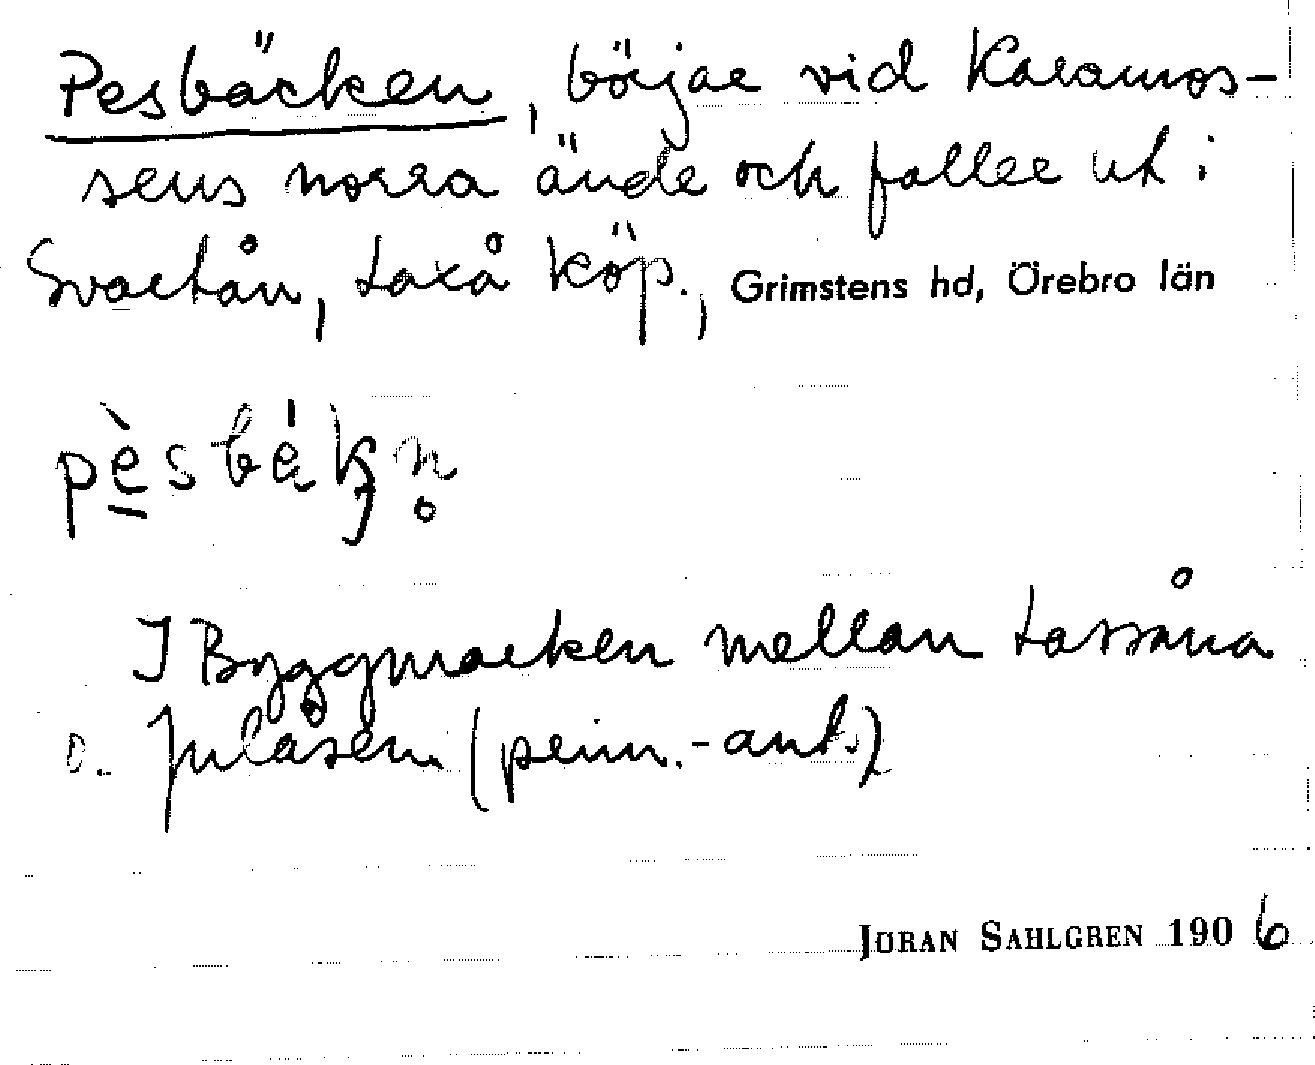 Pesbäcken, börjar vid Karamos-
sens norra ände och faller ut i
Svartån, Laxå köp., Grimstens hd, Örebro län
pèsbékn̥
I Byggmarken mellan Lassåna
o. Julåsen (prim.-ant.)
JÖRAN SAHLGREN 1906